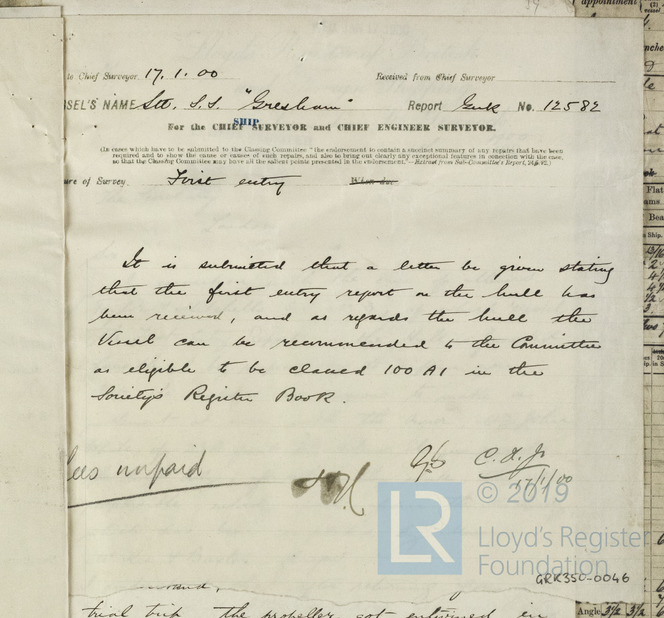 appointment
to Chief Surveyor 17.1.00 Received from Chief Surveyor
SSEL'S NAME Stl. S.S. "Gresham" Report Grk No. 12582
SHIP
For the CHIEF SURVEYOR and CHIEF ENGINEER SURVEYOR.
(In cases which have to be submitted to the Classing Committee "the endorsement to contain a succinct summary of any repairs that have been
required and to show the cause or causes of such repairs, and also to bring out clearly any exceptional features in connection with the case,
so that the Classing Committee may have all the salient points presented in the endorsement."—Extract from Sub-Committee's Report,
ure of Survey. First entry When due
It is submitted that a letter be given stating
that the first entry report on the hull has
been received, and as regards the hull the
Vessel can be recommended to the Committee
as eligible to be classed 100 A1 in the
Society's Register Book.
ees unpaid
17/1/00
© 2019
LR
Lloyd's Register
Foundation
GRK350-0046
trial trip the propeller got entwined in
Flat
Bea
Ship.
Angle 3½ 3½